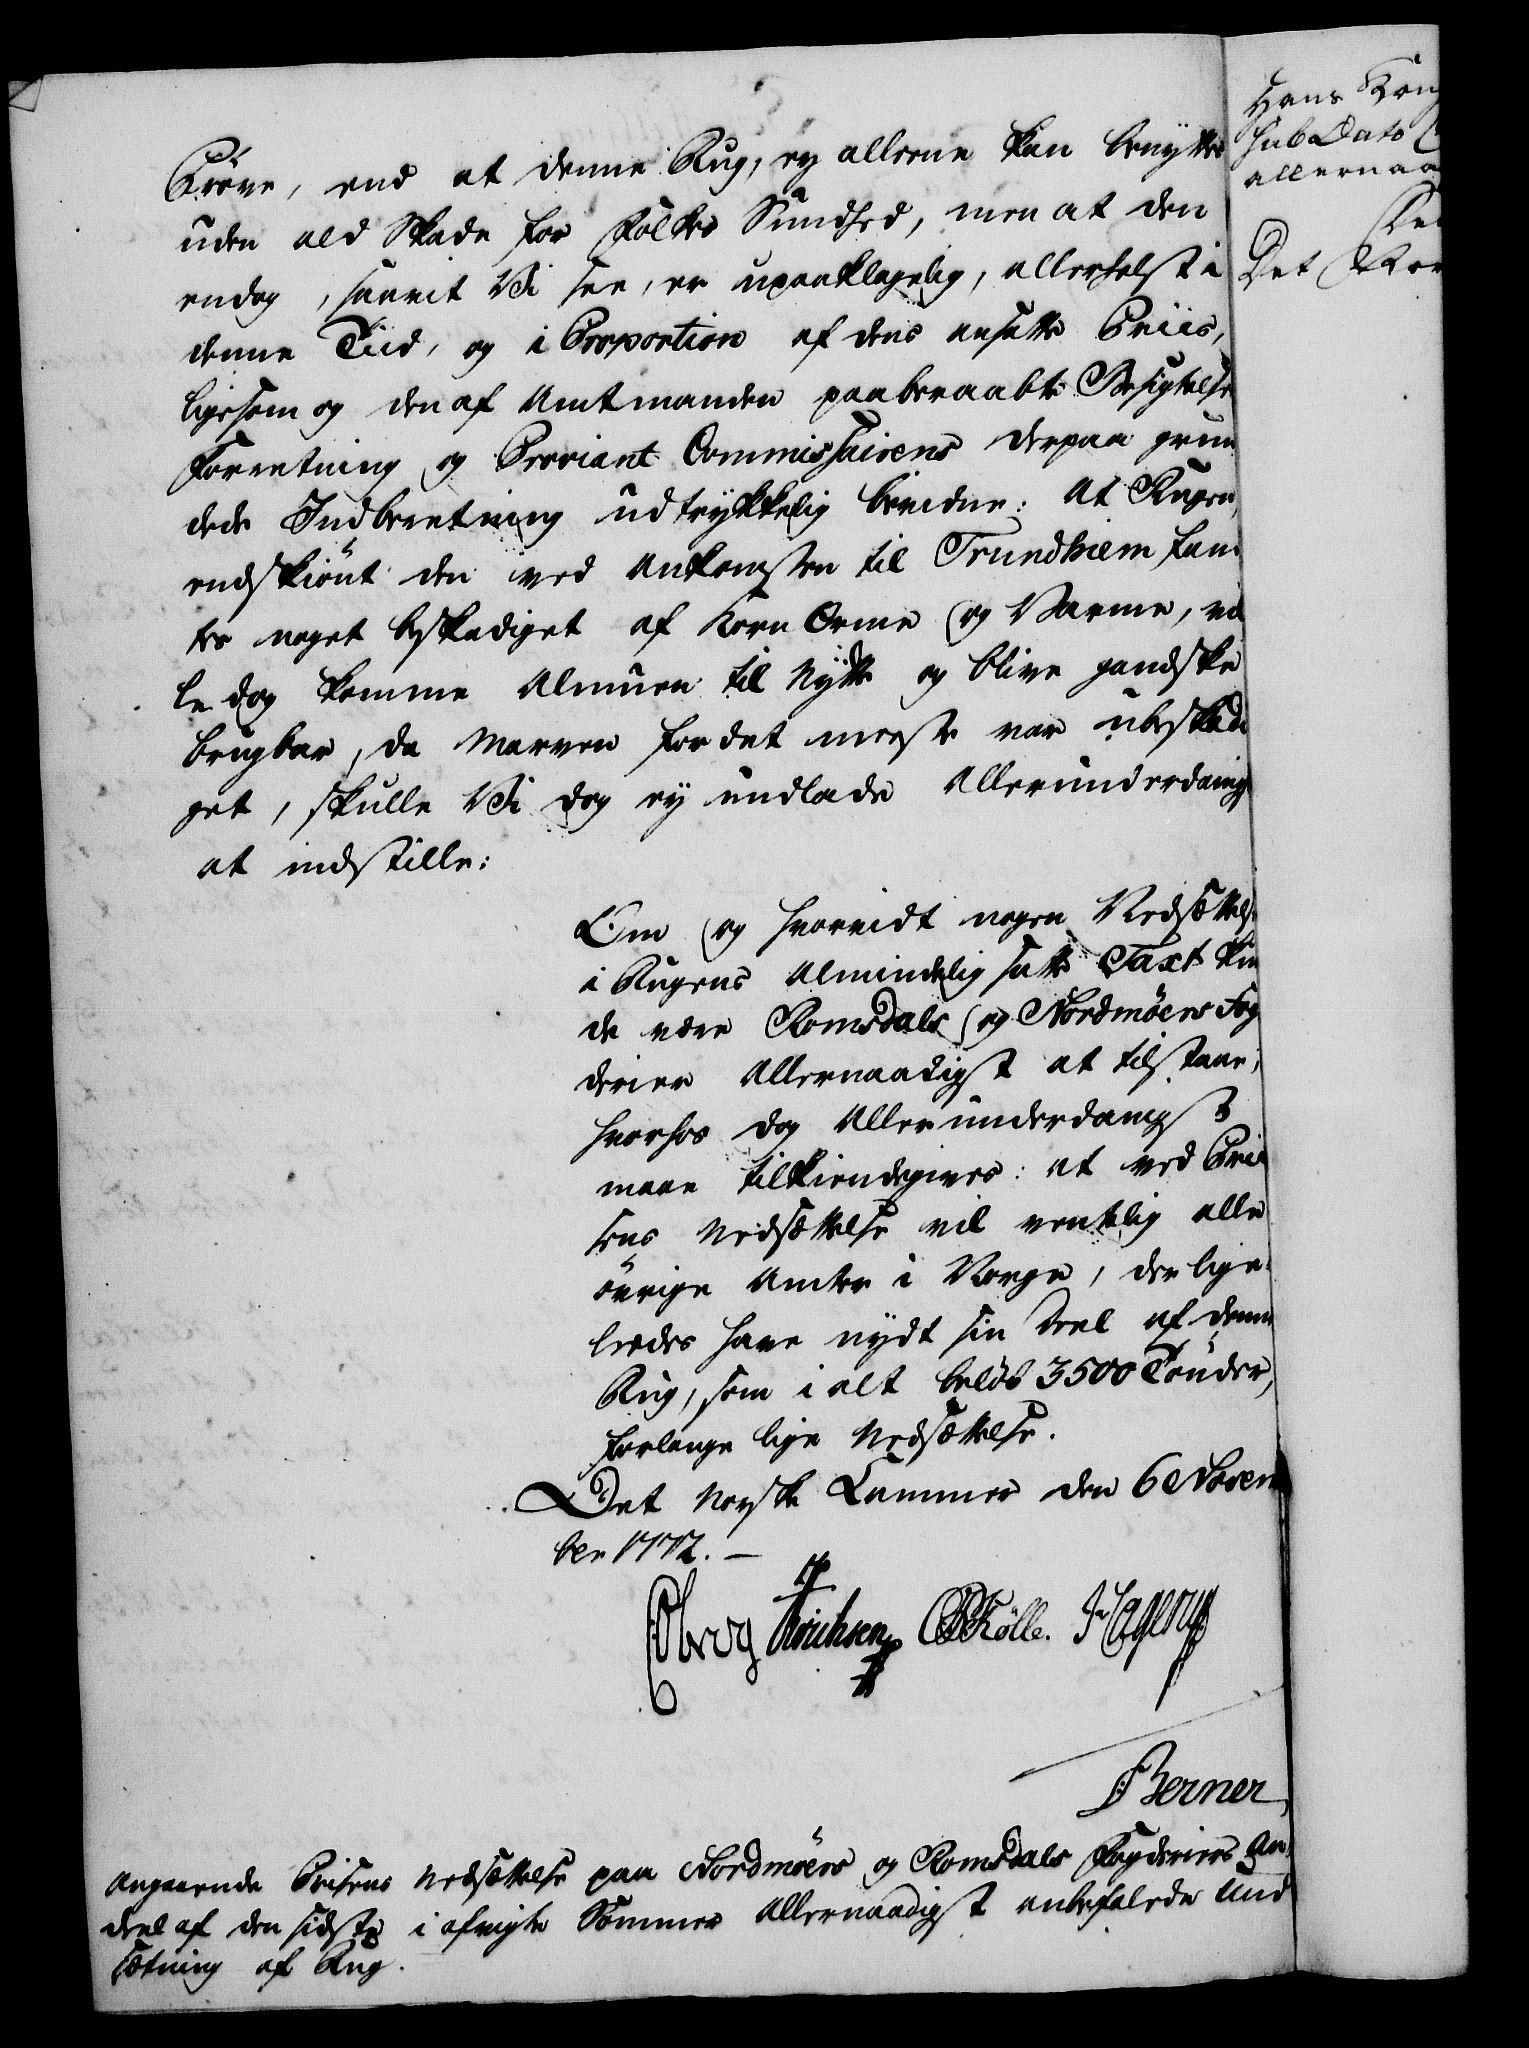 Prøve, end at denne Rug, ey alleene kan benyttes
uden ald Skade for Folkes Sundhed, men at den
endog, saavit Vi see, er upaaklagelig, allerhelst i
denne Tiid, og i Proportion af dens ansatte Priis,
ligesom og den af Amtmanden paaberaabte Besigtelse
Forretning og Proviant Commissairens derpaa grun
dede Indberetning udtrykkelig bevidne: At Rugen,
endskiönt den ved Ankomsten til Trundhiem fan
tes noget beskadiget af Korn Orme og Varme, vil
le dog komme Almuen til Nytte og blive gandske
brugbar, da Marven for det meeste var ubeskadi
get, skulle Vi dog ey undlade Allerunderdanigst
at indstille:
Om og hvorvidt nogen Nedsættelse
i Rugens Almindelig satte Taxt kun
de være Romsdals og Nordmöers Fog
derier Allernaadigst at tilstaae,
hvorhos dog Allerunderdanigst
maae tilkiendegives: at ved Prii
sens Nedsættelse vil ventelig alle
övrige Amter i Norge, der lige
ledes have nydt sin Deel af denne
Rug, som i alt belöb 3500 Tönder,
forlange lige Nedsættelse.
Det Norske Kammer den 6 Novem
ber 1772. –
Berner
Angaaende Prisens Nedsættelse paa Nordmöers og Romsdals Fogderiers An
deel af den sidste i afvigte Sommer Allernaadigst anbefalede Und
sætning af Rug.
Hans Kong
sub Dato
allernaa
Det Nor